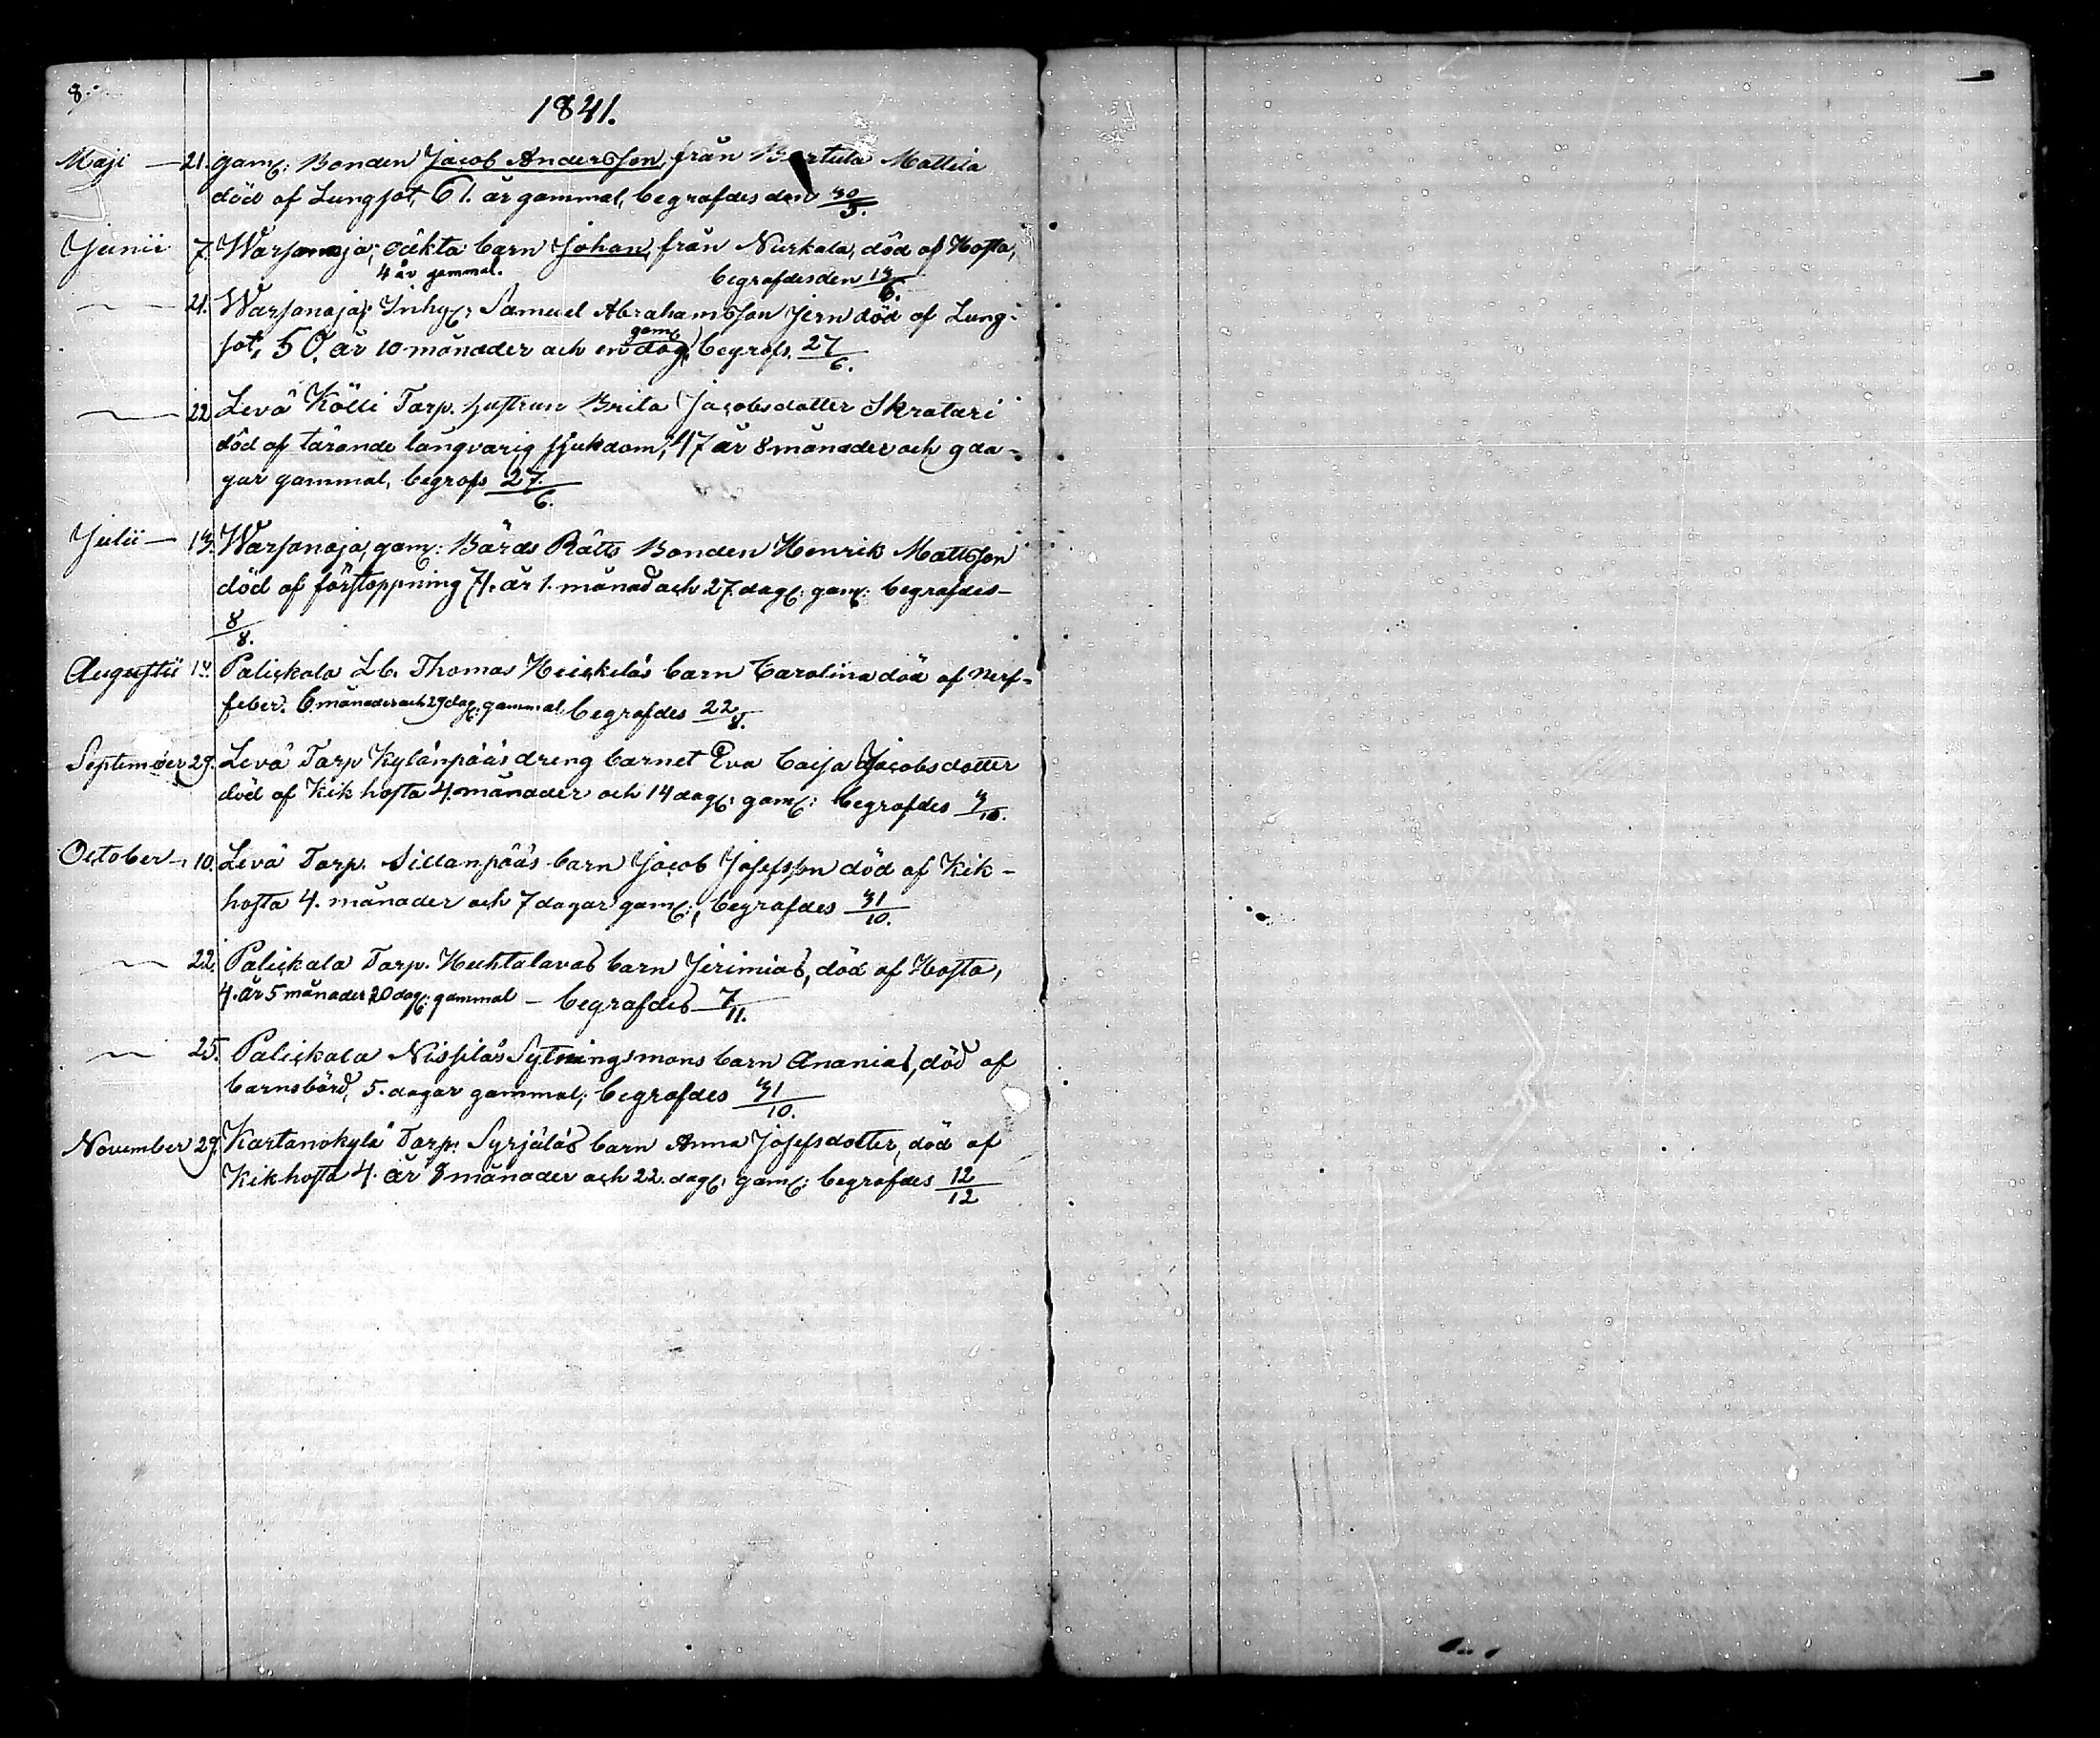 8.
1841.
Maji — 21. gaml: Bonden Jacob Andersson, från Bertula Mattila
död af Lungsot, 61. år gammal, begrafdes den 30/5.
Junii 7. Warsanoja, oäkta barn Johan, från Nurkala, död af Hosta,
4 år gammal. begrafdes den 13/6.
— 21. Warsanoja, Inhys: Samuel Abrahamsson Jern död af Lung-
sot, 50. år 10 månader och en dag, gaml begrofs. 27/6.
— 22 Levä Kölli Torp. hustrun Brita Jacobsdotter Skratari
död af tärande långvarig sjukdom, 47 år 8 månader och 9 da-
gar gammal, begrofs 27/6.
Julii — 13. Warsanoja, gaml: Bårds Rätts Bonden Henrik Mattsson
död af förstoppning 71. år 1. månad och 27. dag: gaml: begrafdes —
8/8.
Augustii 13. Palickala Lb. Thomas Heickiläs barn Carolina död af Nerf-
feber. 6. månader och 29 dag: gammal begrafdes 22/8.
September 29. Levä Torp Kylänpääs dreng barnet Eva Caisa Jacobsdotter
död af Kik hosta 4. månader och 14 dag: gaml: begrafdes 3/10.
October — 10. Levä Torp. Sillanpääs barn Jacob Josefsson död af Kik-
hosta 4. månader och 7 dagar gaml:, begrafdes 31/10.
— 22. Palickala Torp. Huhtalavas barn Jerimias, död af Hosta,
4. år 5 månader 20 dag: gammal — begrafdes 7/11.
— 25. Palickala Nissiläs Sytningsmans barn Ananias, död af
barnsbörd, 5. dagar gammal, begrafdes 31/10.
November 29. Kartanokylä Torp: Syrjäläs barn Anna Josefsdotter, död af
Kikhosta 4. år 8 månader och 22. dag: gaml: begrafdes 12/12